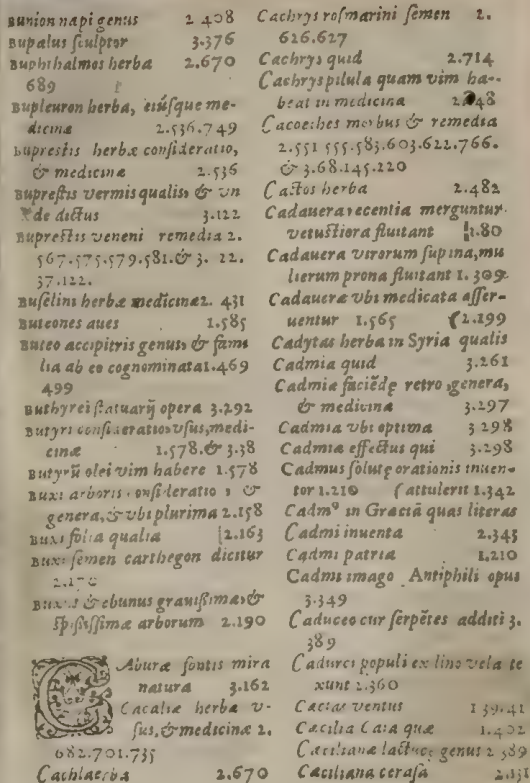 Bunion napi genus 2.408
Bupalus sculptor 3.376
Buphthalmos herba 2.670
689
Bupleuron herba, eiusque me-
dicinæ 2.536.749
Buprestis herbæ consideratio,
& medicinæ 2.536
Buprestis vermis qualis, & vn
de dictus 3.122
Buprestis veneni remedia 2.
567.575.579.581.& 3. 22.
37.122.
Buselini herbæ medicinæ 2. 431
Buteones aues 1.585
Buteo accipitris genus, & fami
lia ab eo cognominata 1.469
499
Buthyrei statuarij opera 3.292
Butyri consideratio vsus, medi-
cinæ 1.578.& 3.38
Butyrū olei vim habere 1.578
Buxi arboris consideratio, &
genera, & vbi plurima 2.158
Buxi folia qualia 2.163
Buxi semen carthegon dicitur
2.170
Buxus & ebenus grauissimæ, &
spississimæ arborum 2.190
Caburæ fontis mira
natura 3.162
Cacaliæ herbæ v-
sus, & medicinæ 2.
682.701.735
Cachla herba 2.670
Cachrys rosmarini semen 2.
626.627
Cachrys quid 2.714
Cachrys pilula quam vim ha-
beat in medicina 2. 48
Cacoethes morbus & remedia
2.551 555.583.603.622.766.
& 3.68.145.220
Cactos herba 2.482
Cadauera recentia merguntur
vetustiora fluitant 1.80
Cadauera virorum supina, mu
lierum prona fluitant 1. 309.
Cadauera vbi medicata asser-
uentur 1.565 (2.199
Cadytas herba in Syria qualis
Cadmia quid 3.261
Cadmiæ faciēdę retro, genera,
& medicinæ 3.297
Cadmia vbi optima 3 298
Cadmiæ effectus qui 3.298
Cadmus solutę orationis inuen-
tor 1.210 (attulerit 1.342
Cadmꝰ in Græciā quas literas
Cadmi inuenta 2.345
Cadmi patria 1.210
Cadmi imago Antiphili opus
3.349
Caduceo cur serpētes additi 3.
389
Cadurci populi ex lino vela te
xunt 2.360
Cæcias ventus 1 39.41
Cæcilia Caia quæ 1.402
Cæcilianæ lactucę genus 2 389
Cæciliana cerasa 2.131